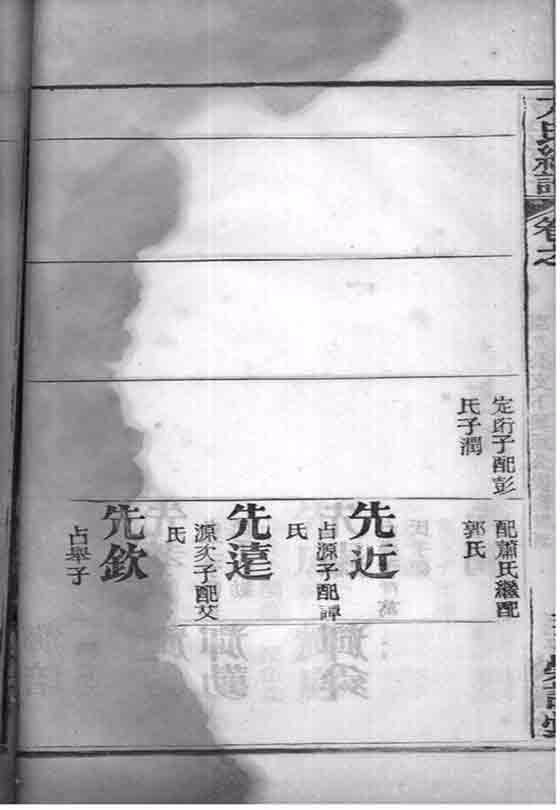 卷之
定珩子配彭
氏子潤
配蕭氏繼配
郭氏
先近
占源子配譚
氏
先逺
源次子配艾
氏
先欽
占舉子